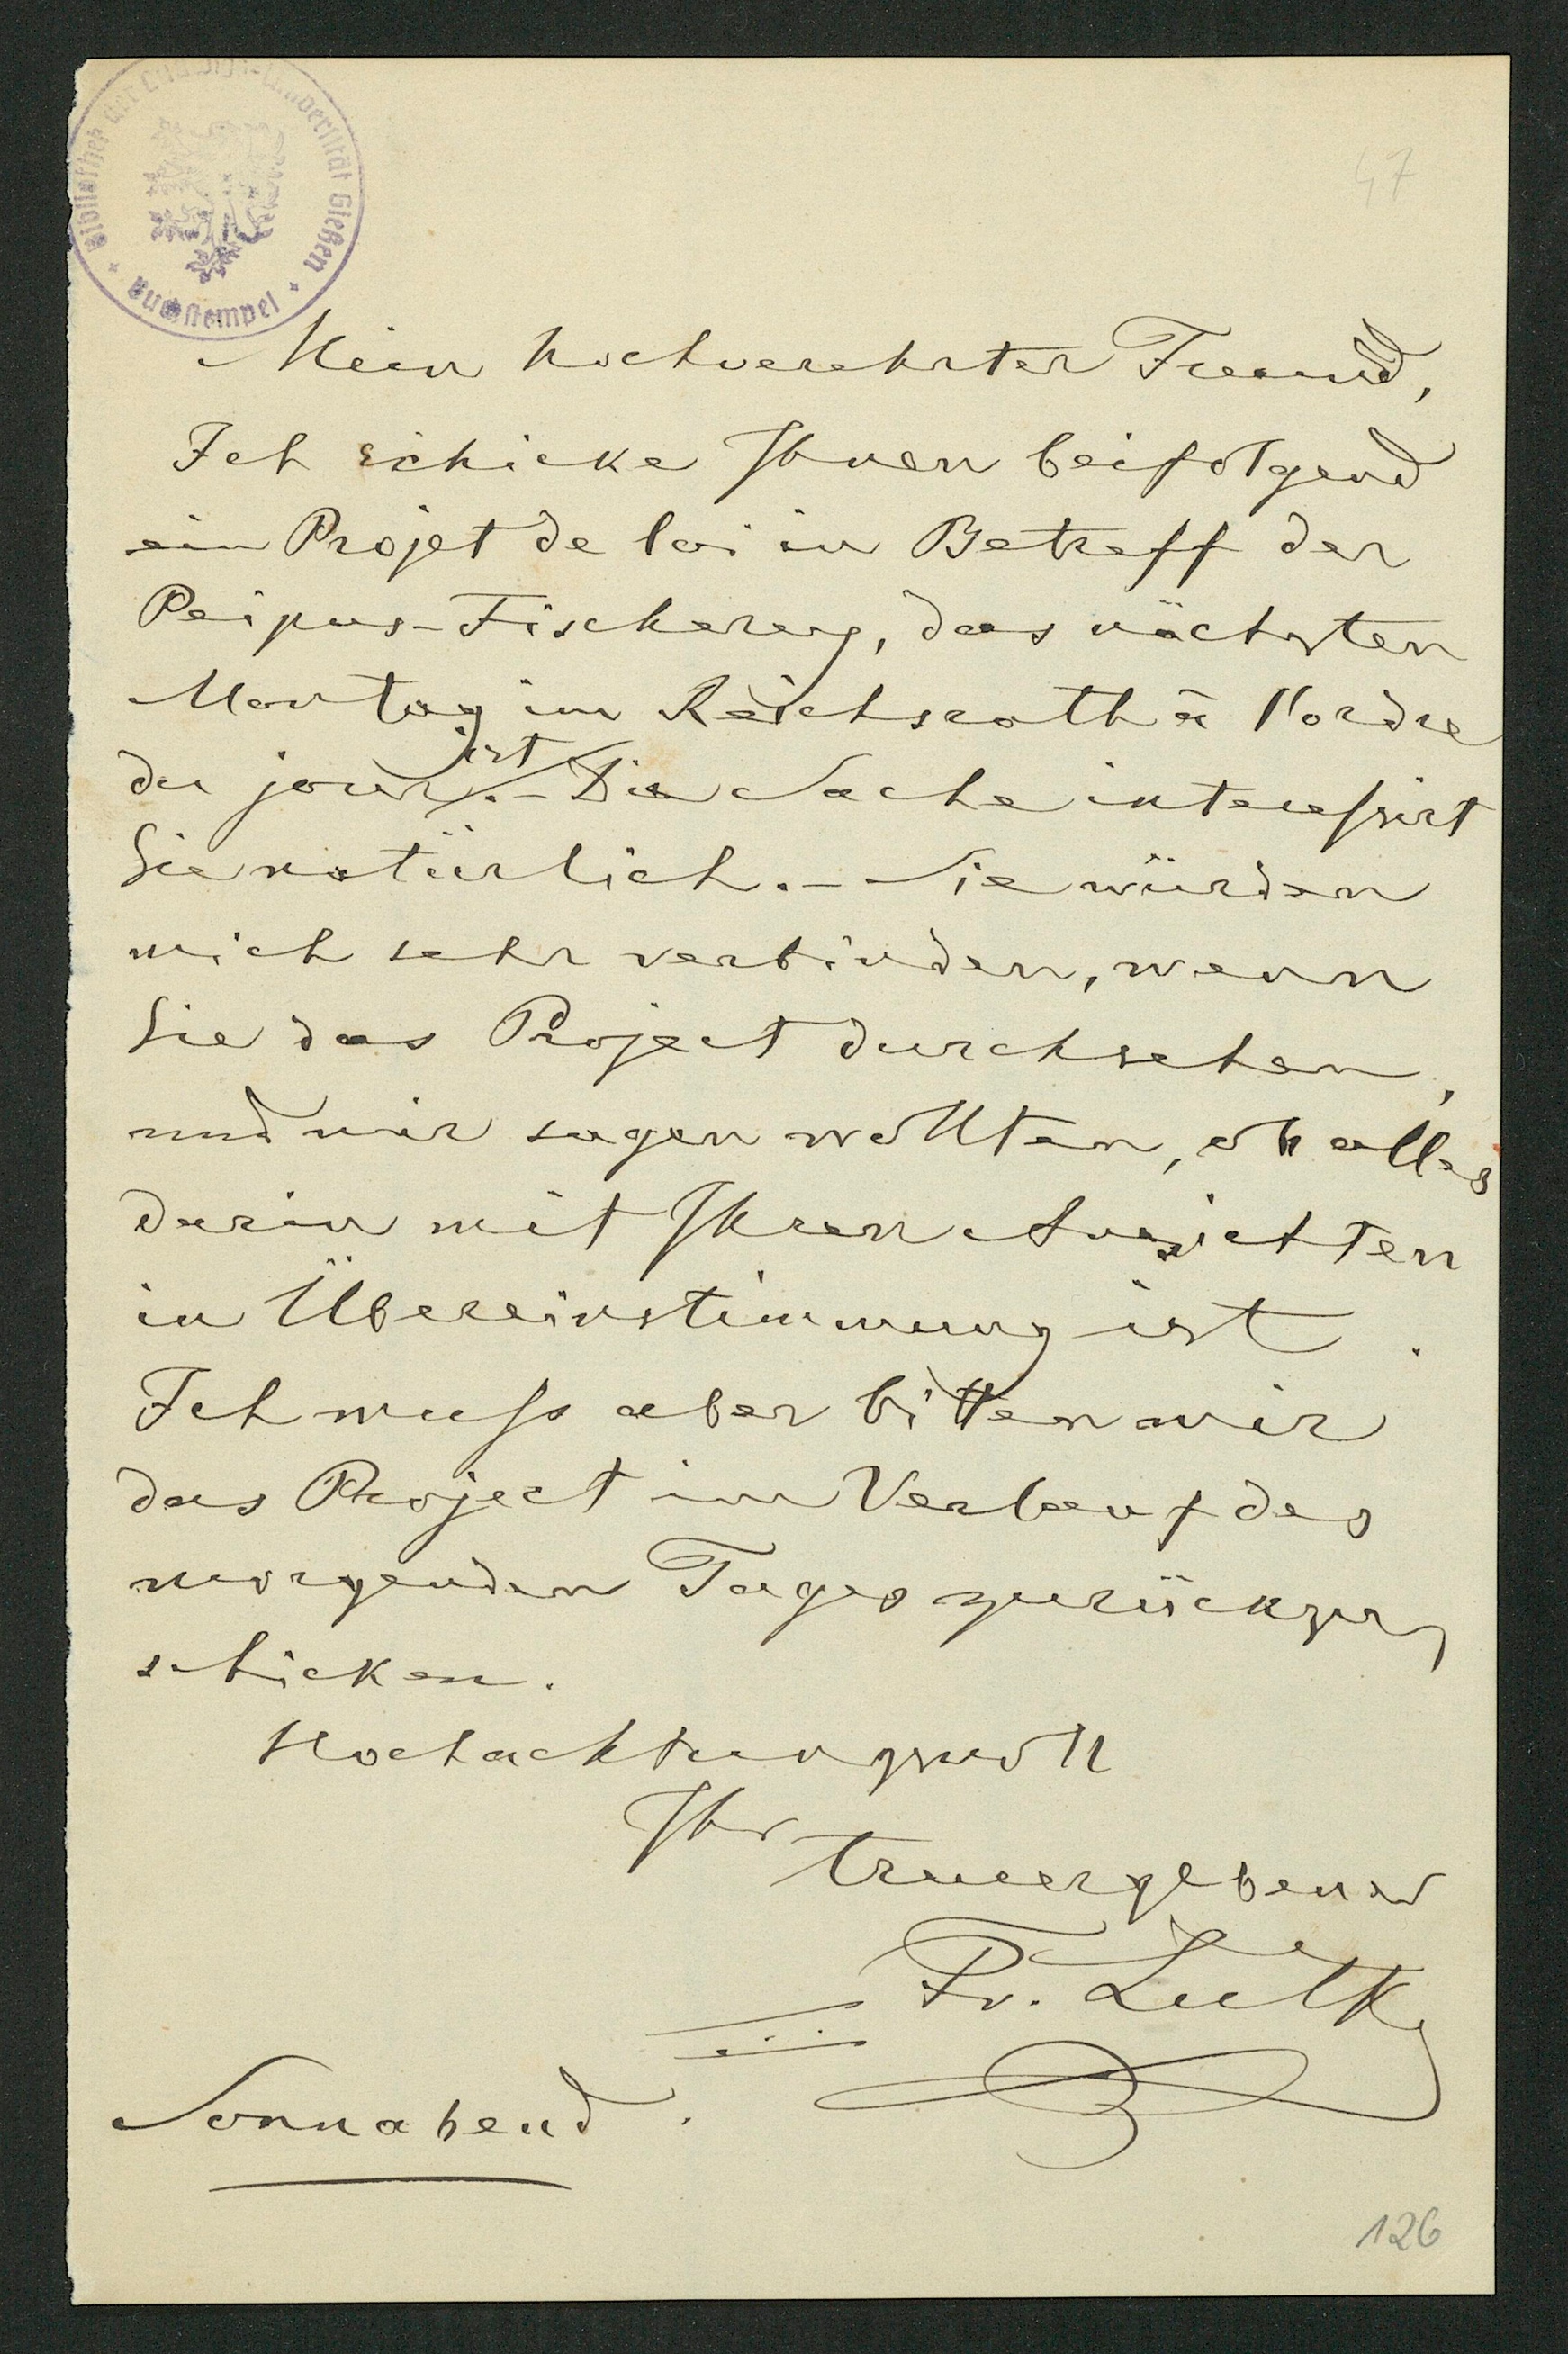 Bibliothek der Ludwigs-Universität Gießen
Buchstempel
47
Mein hochverehrter Freund,
Ich schicke Ihnen beifolgend
ein Projet de loi in Betreff der
Peipus-Fischerey, das nächsten
Montag im Reichsrath à l'ordre
du jour ist.– Die Sache interessirt
Sie natürlich.– Sie würden
mich sehr verbinden, wenn
Sie das Project durchsehen,
und mir sagen wollten, ob alles
darin mit Ihren Ansichten
in Übereinstimmung ist.
Ich muss aber bitten mir
das Project im Verlauf des
morgenden Tages zurückzu
schicken.
Hochachtungsvoll
Ihr
treuergebener
Fr. Lütke
Sonnabend.
126